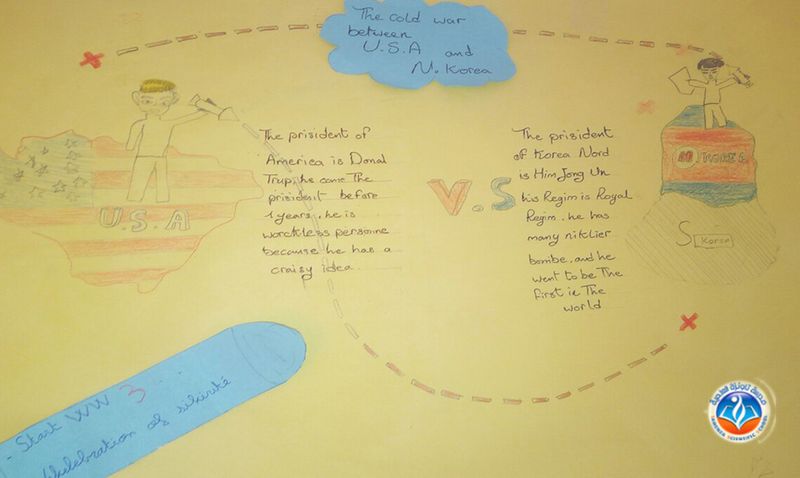 The cold war
between
U.S.A and
N. Korea
The prisident of
America is Donal
Trup, he came The
prisident before
1 years, he is
worckless personne
because he has a
craisy idea
U.S.A
V.S
The prisident
of Korea Nord
is Him Jong Un
his Regim is Royal
Regim. he has
many niklier
bombe, and he
went to be The
first in The
world
N. KOREA
S Korea
- Start WW 3
of siburté